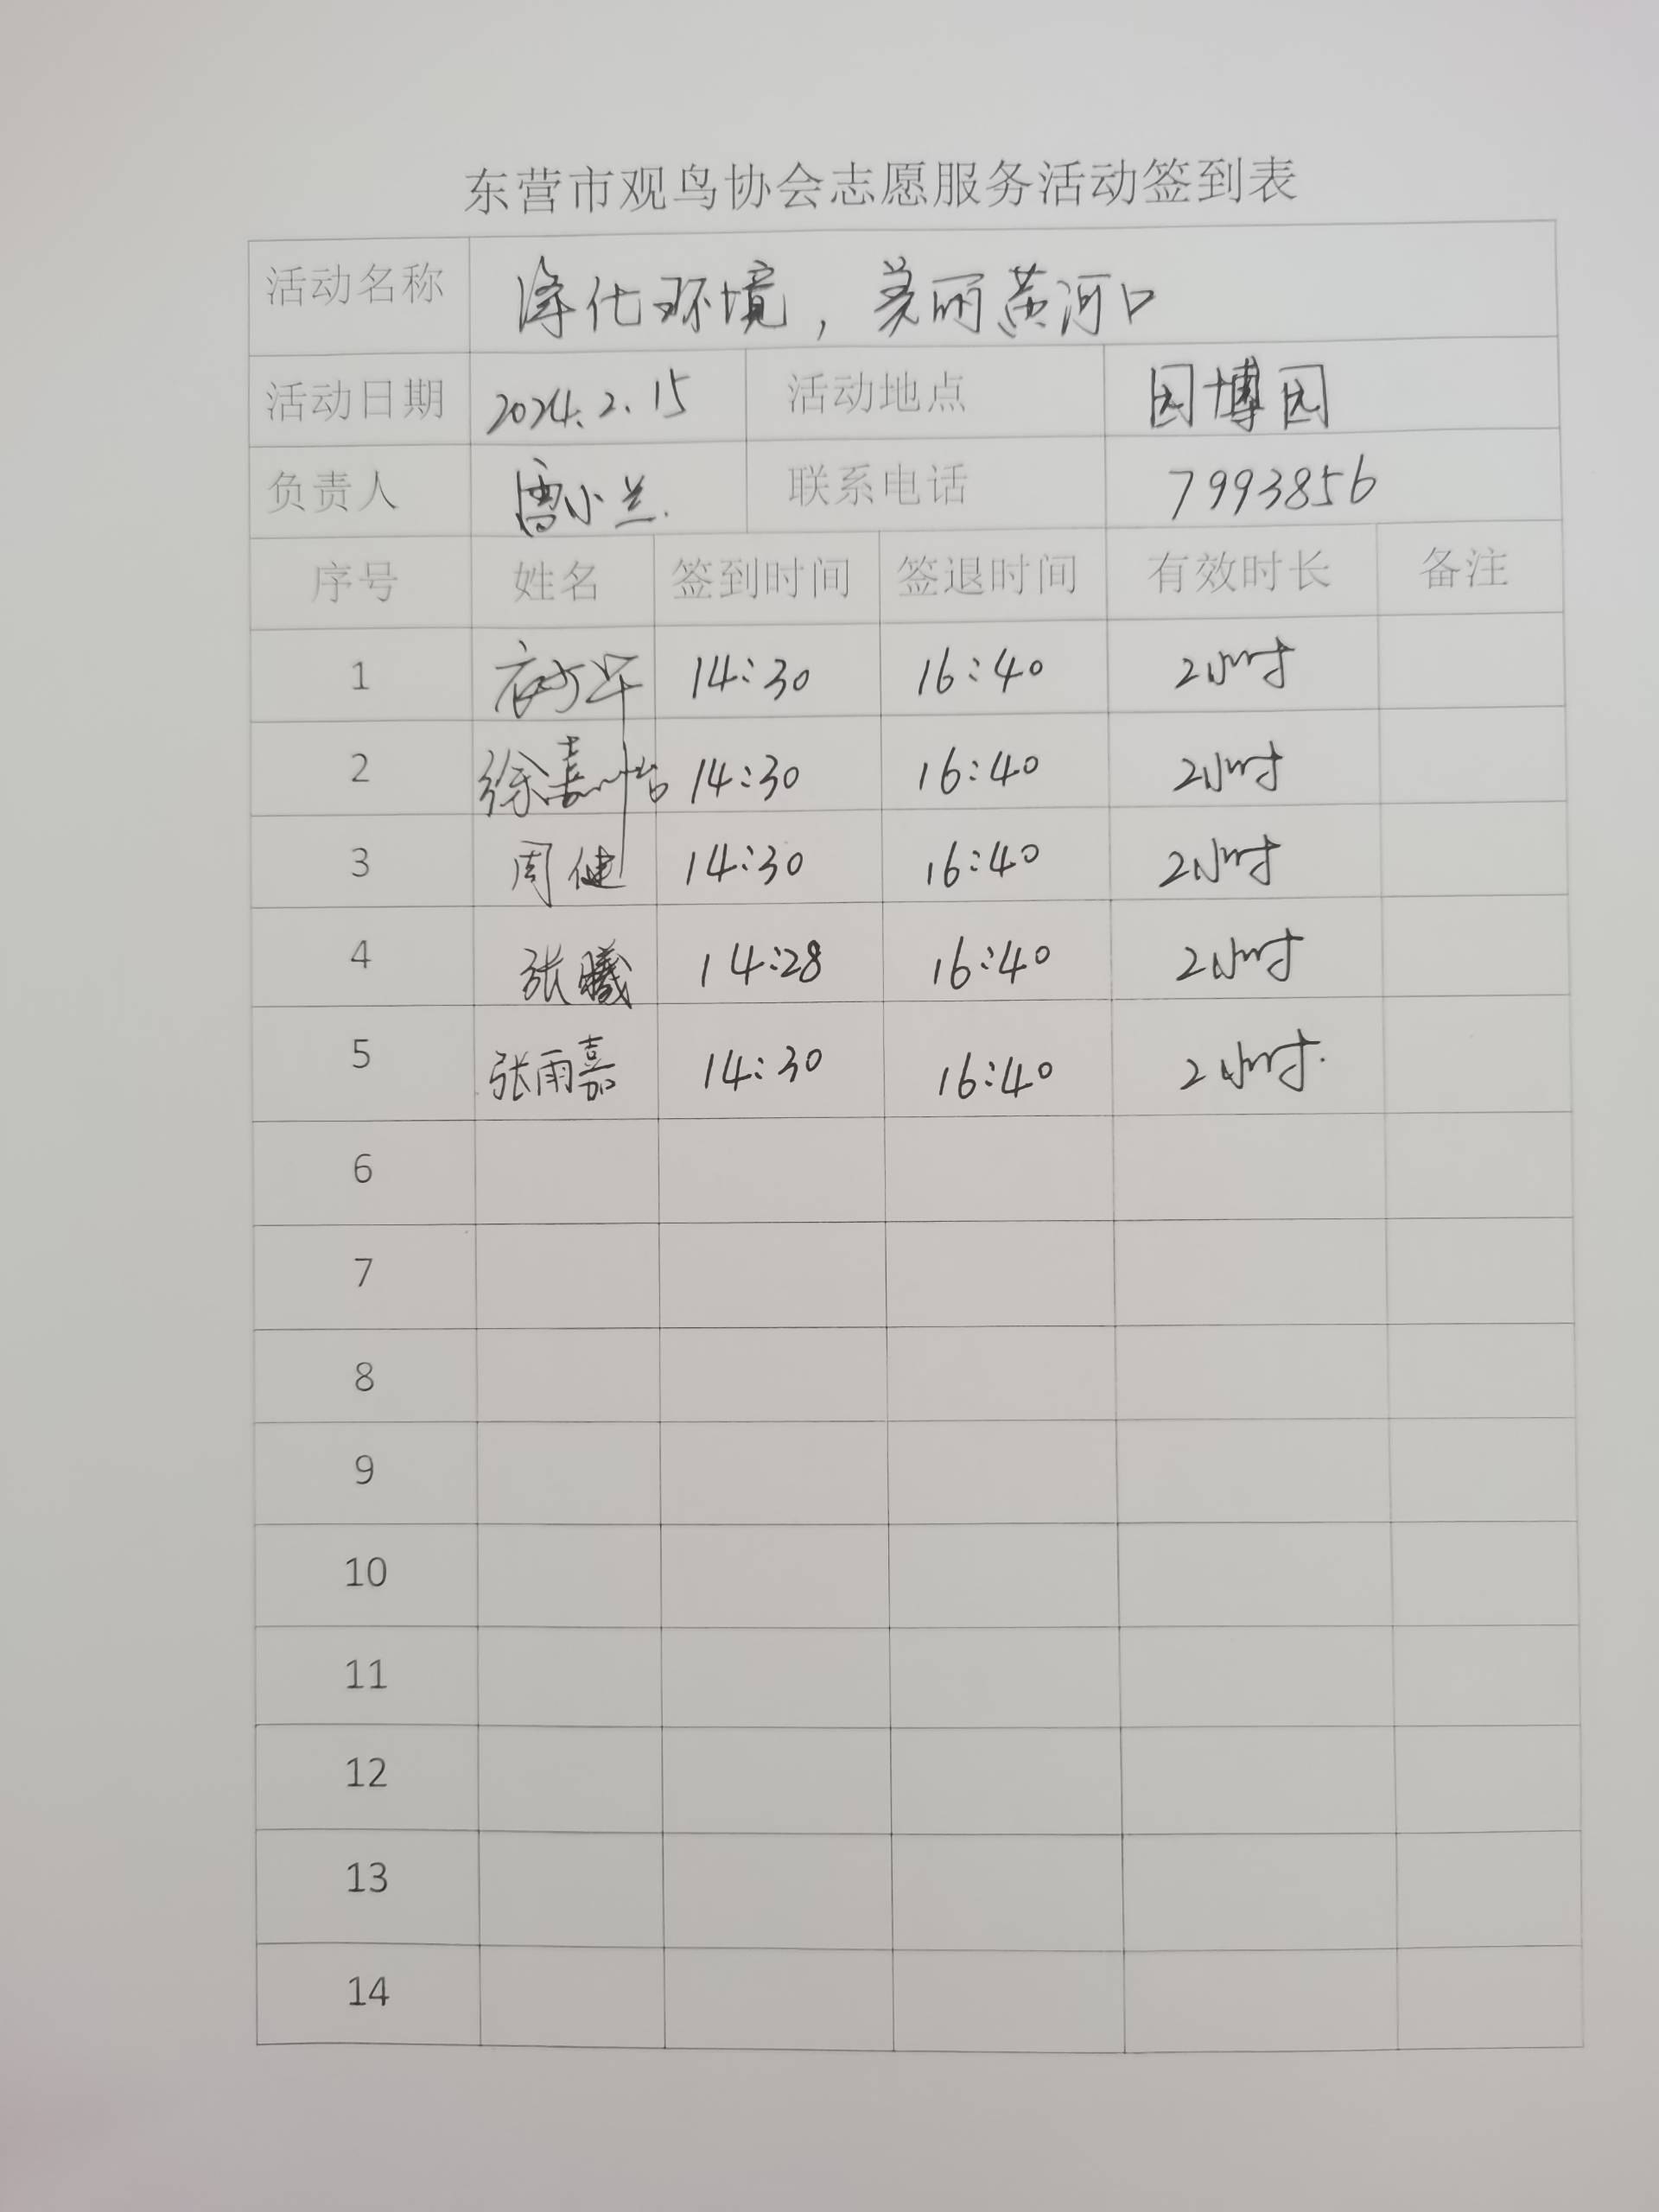 东营市观鸟协会志愿服务活动签到表
活动名称 净化环境，美丽黄河口
活动日期 2024.2.15 活动地点 园博园
负责人 小兰. 联系电话 7993856
序号 姓名 签到时间 签退时间 有效时长 备注
1 14:30 16:40 2小时
2 徐嘉怡 14:30 16:40 2小时
3 周健 14:30 16:40 2小时
4 张曦 14:28 16:40 2小时
5 张雨嘉 14:30 16:40 2小时.
6
7
8
9
10
11
12
13
14